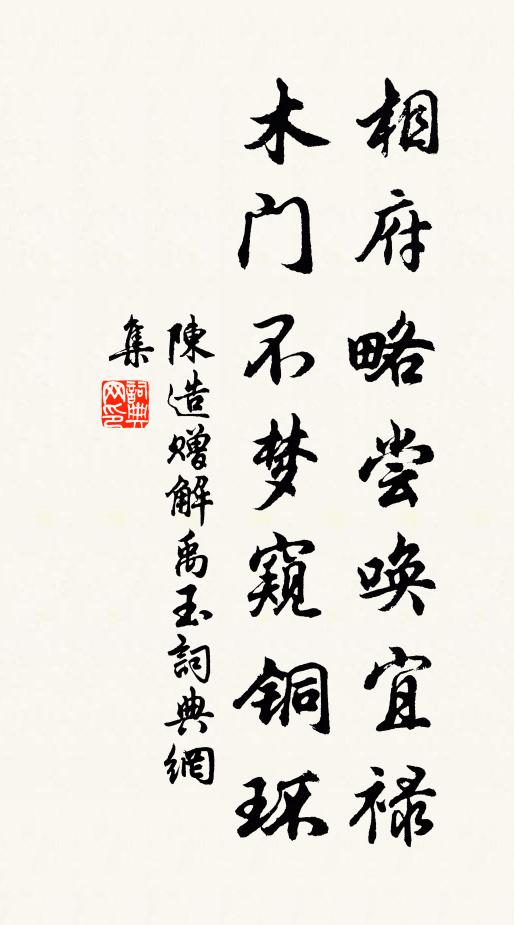 相府略尝唤宜禄
木门不梦窥铜环
陳造赠解禹玉詞典網
集
詞典网印